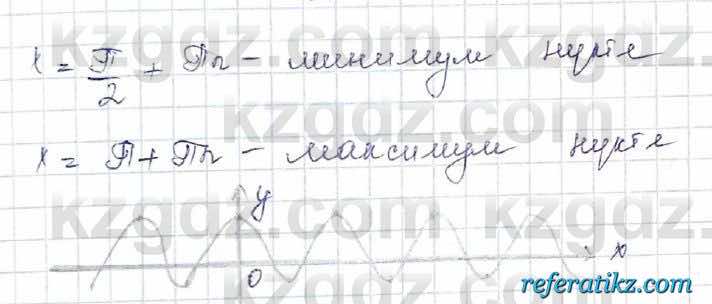 x = П/2 + Пn – минимум нүкте
x = П + Пn – максимум нүкте
y
0
x
kzgdz.com
referatikz.com